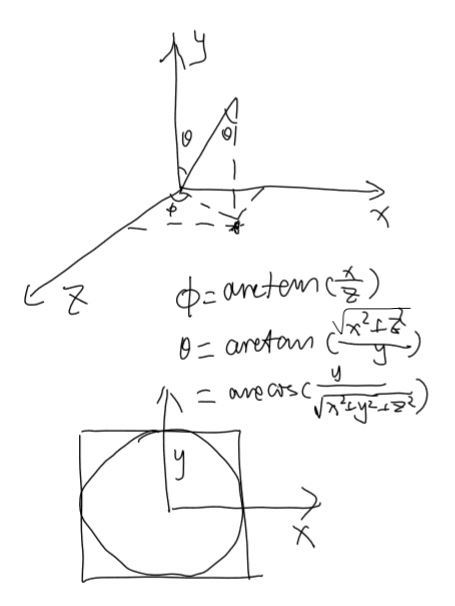 y
θ
θ
φ
x
z
φ = arctan(x/z)
θ = arctan(√(x²+z²)/y)
= arccos(y/√(x²+y²+z²))
y
x